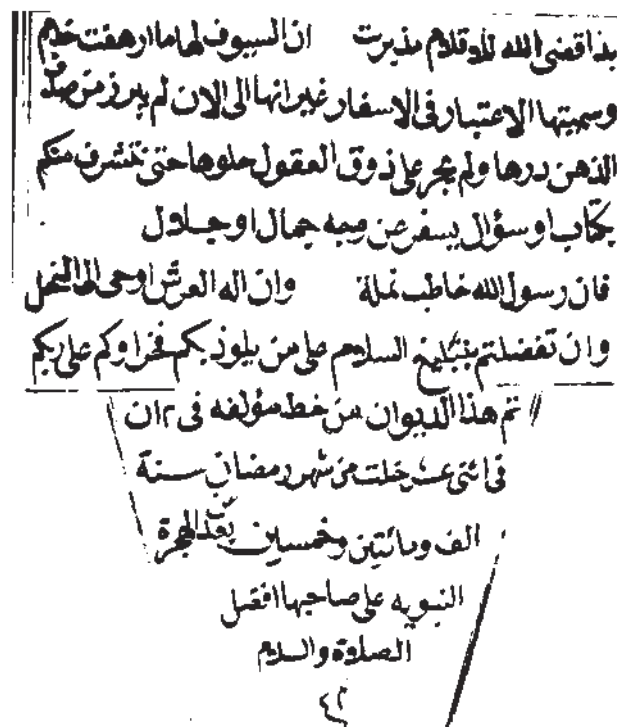 بذا قضى الله للاقلام مذ برت ان السيوف لها ما ارهفت خدم
وسميتها الاعتبار فى الاسفار غير انها الى الان لم يبرز من صدف
الذهن درها ولم يجر على ذوق العقول حلوها حتى تتشرف منكم
بكتاب او سؤال يسفر عن وجه جمال او جلال
فان رسول الله خاطب نملة وان اله العرش اوحى الى النحل
وان تفضلتم بتبليغ السلام على من يلوذ بكم على ربكم
تم هذا الديوان من خط مؤلفه فى
فى اثنى عشر خلت من شهر رمضان سنة
الف ومائتين وخمسين بعد الهجرة
النبويه على صاحبها افضل
الصلاة والسلام